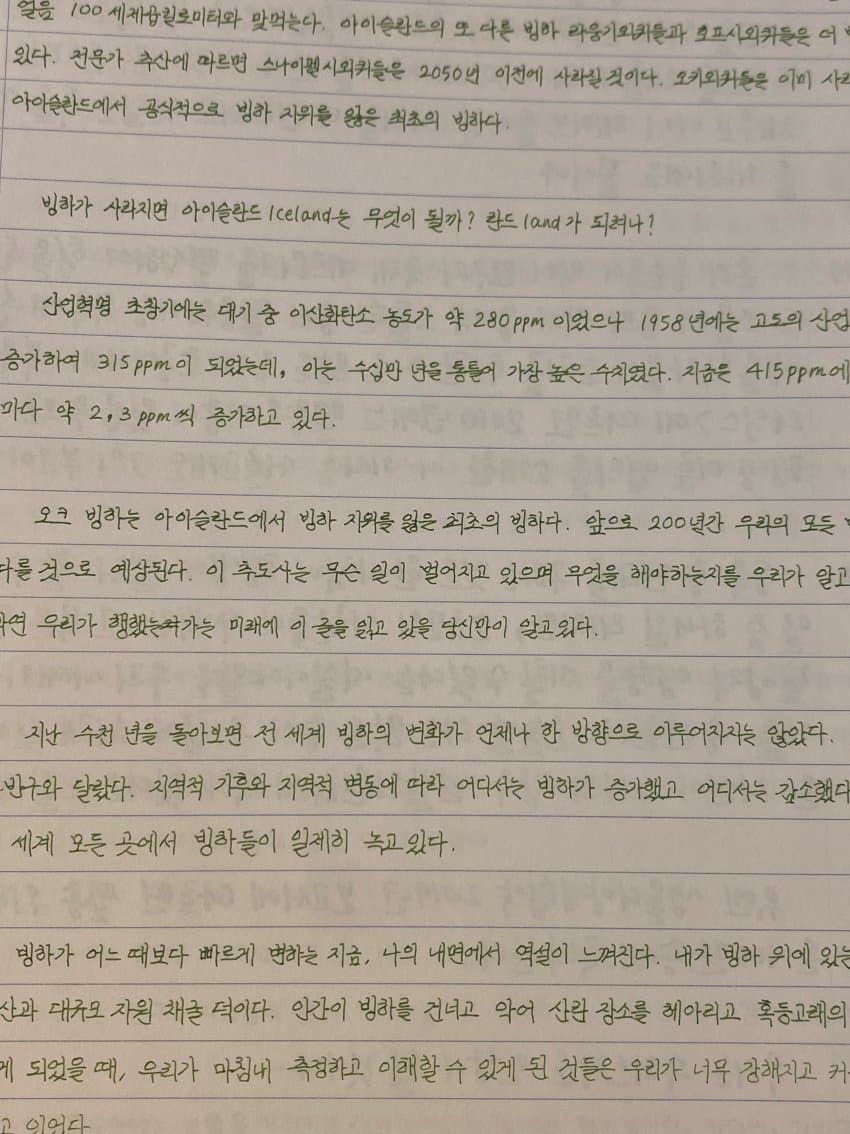 얼음 100 세제곱킬로미터와 맞먹는다. 아이슬란드의 또 다른 빙하 라웅기외퀴들과 호프시외퀴들은 더
있다. 전문가 추산에 따르면 스나이펠시외퀴들은 2050년 이전에 사라질 것이다. 오키외퀴들은 이미 사라
아이슬란드에서 공식적으로 빙하 지위를 잃은 최초의 빙하다.
빙하가 사라지면 아이슬란드 Iceland는 무엇이 될까? 란드 land가 되려나?
산업혁명 초창기에는 대기 중 이산화탄소 농도가 약 280 ppm 이었으나 1958년에는 고도의 산업
증가하여 315 ppm이 되었는데, 이는 수십만 년을 통틀어 가장 높은 수치였다. 지금은 415 ppm에
마다 약 2, 3 ppm씩 증가하고 있다.
오크 빙하는 아이슬란드에서 빙하 지위를 잃은 최초의 빙하다. 앞으로 200년간 우리의 모든
다를 것으로 예상된다. 이 추도사는 무슨 일이 벌어지고 있으며 무엇을 해야하는지를 우리가 알고
과연 우리가 행했는가는 미래에 이 글을 읽고 있을 당신만이 알고있다.
지난 수천 년을 돌아보면 전 세계 빙하의 변화가 언제나 한 방향으로 이루어지지는 않았다.
반구와 달랐다. 지역적 기후와 지역적 변동에 따라 어디서는 빙하가 증가했고 어디서는 감소했다
세계 모든 곳에서 빙하들이 일제히 녹고있다.
빙하가 어느 때보다 빠르게 변하는 지금, 나의 내면에서 역설이 느껴진다. 내가 빙하 위에 있는
산과 대규모 자원 채굴 덕이다. 인간이 빙하를 건너고 악어 산란 장소를 헤아리고 혹등고래의
게 되었을 때, 우리가 마침내 측정하고 이해할 수 있게 된 것들은 우리가 너무 강해지고 커
고 있었다